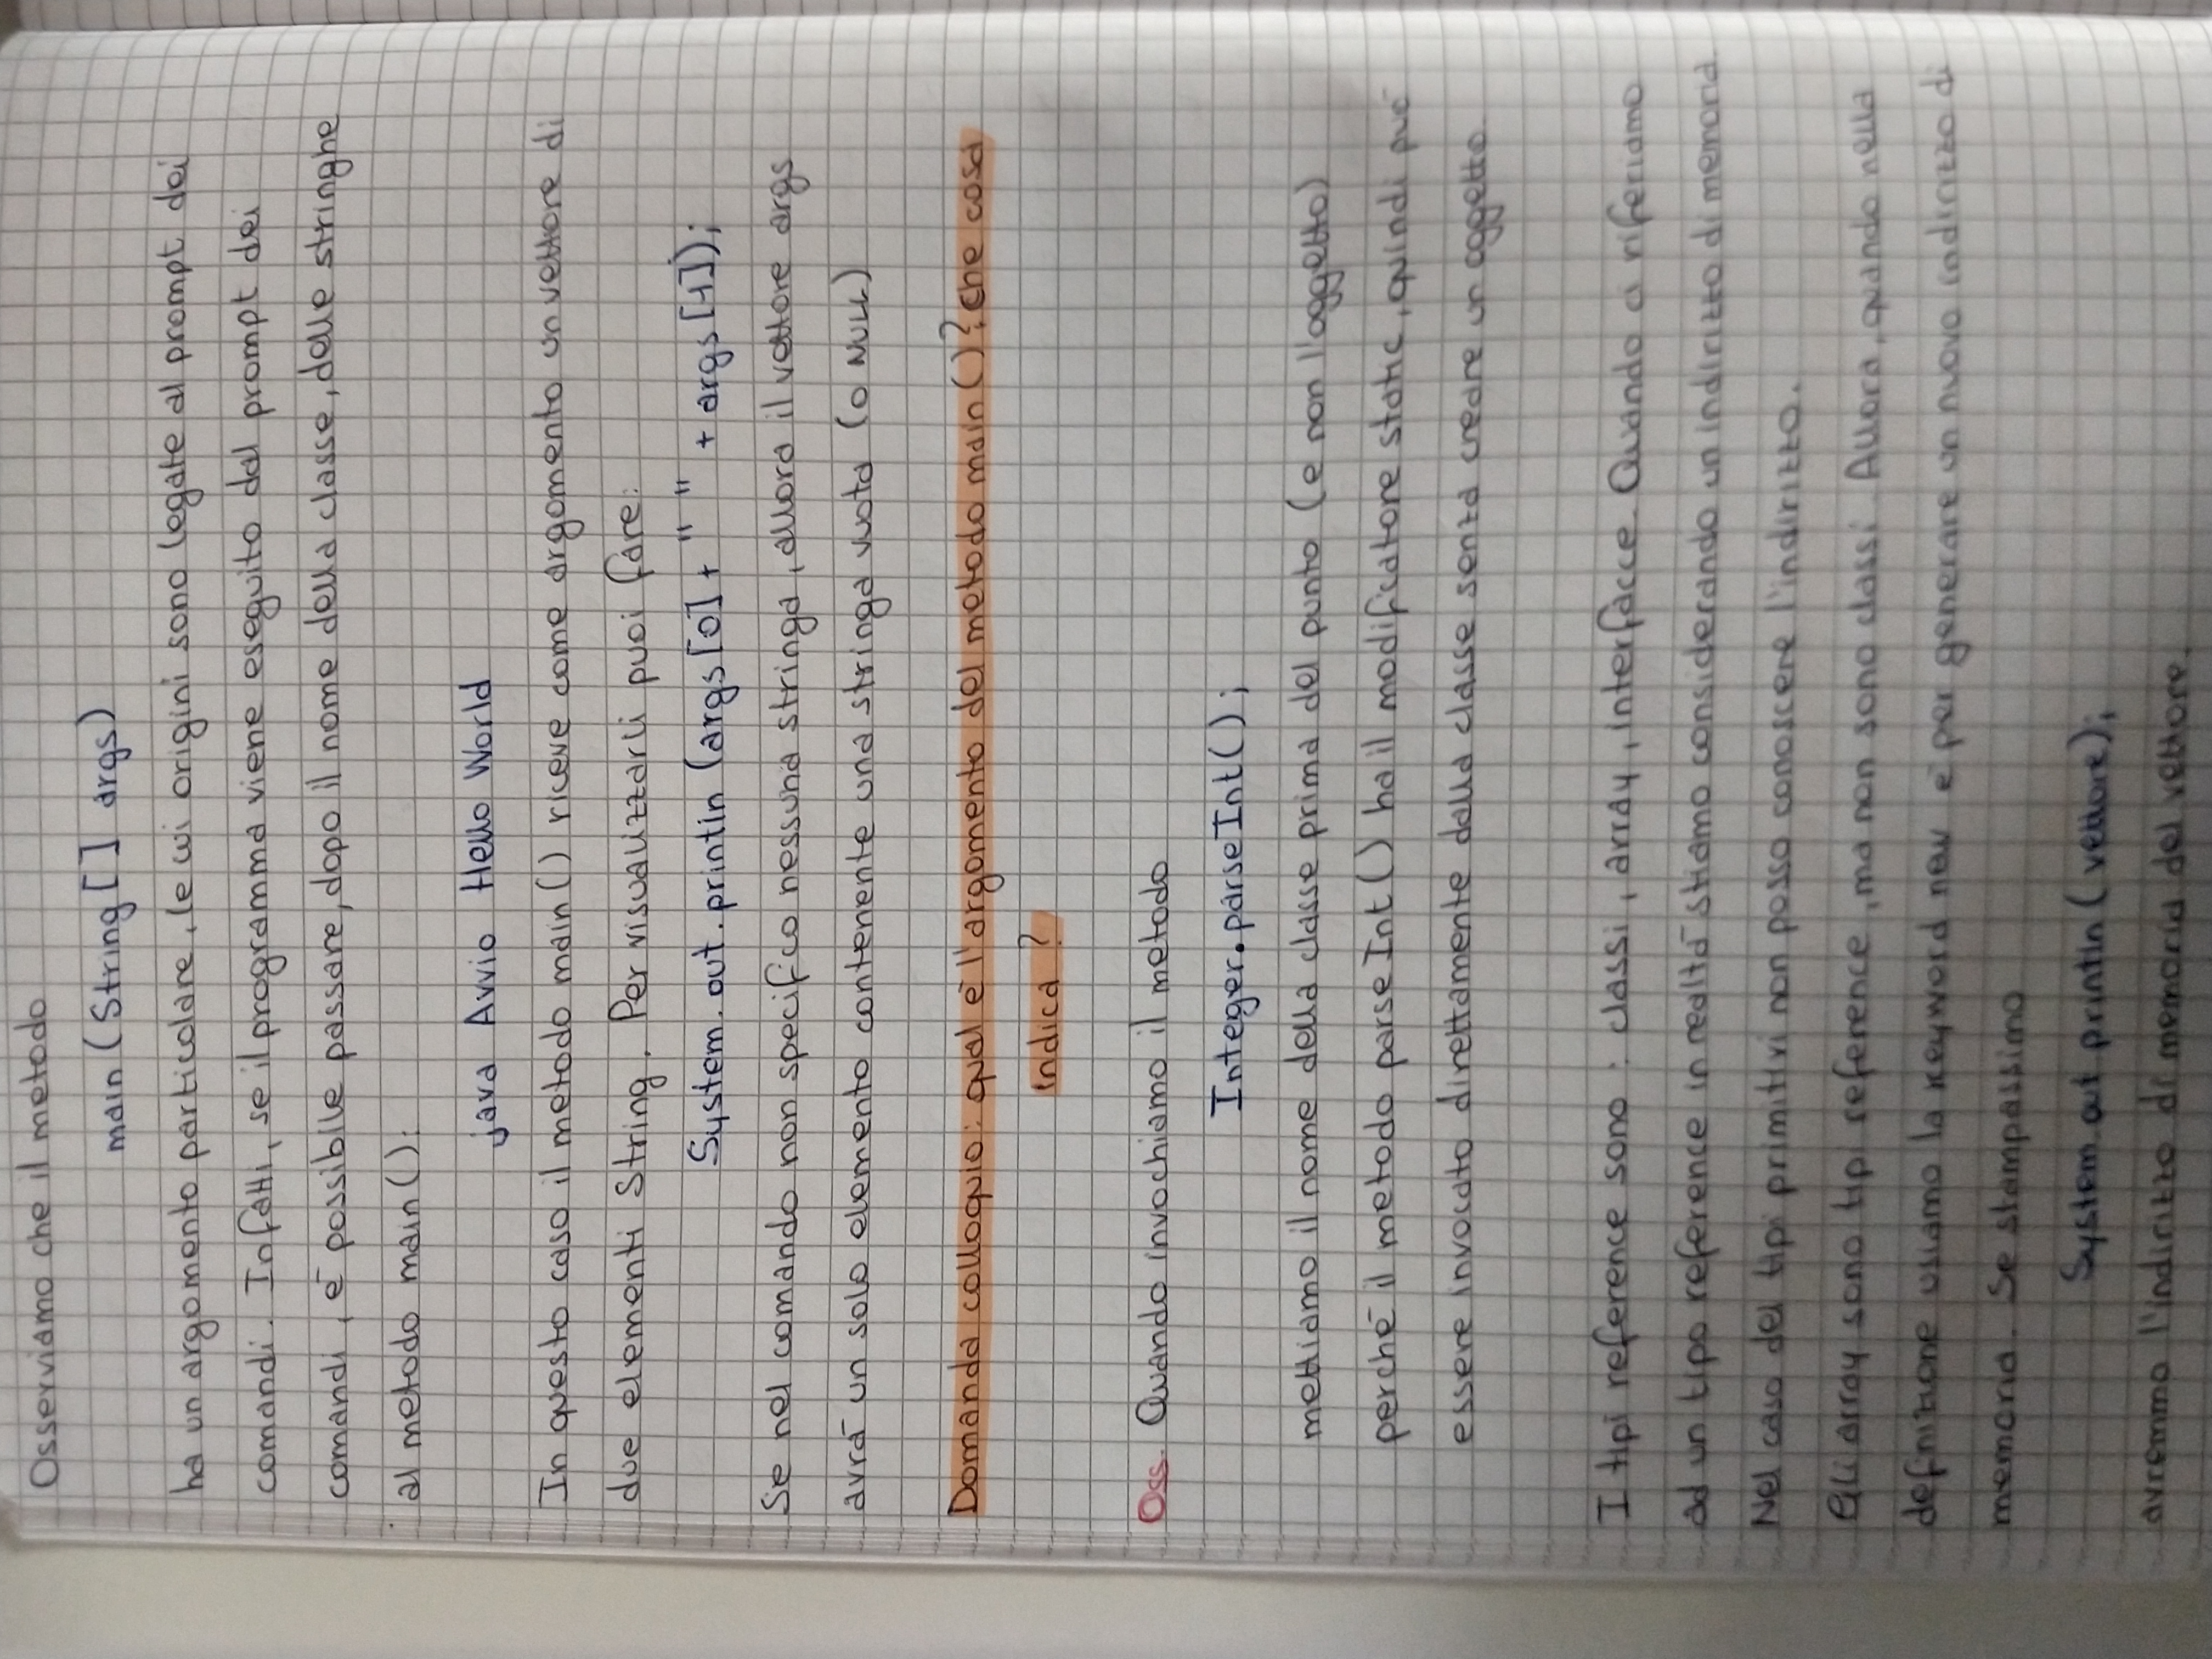 Osserviamo che il metodo
main (String [] args)
ha un argomento particolare, le cui origini sono legate al prompt dei
comandi. Infatti, se il programma viene eseguito dal prompt dei
comandi, è possibile passare, dopo il nome della classe, delle stringhe
al metodo main():
java Avvio Hello World
In questo caso il metodo main() riceve come argomento un vettore di
due elementi String. Per visualizzarli puoi fare:
System.out.println (args[0] + " " + args[1]);
Se nel comando non specifico nessuna stringa, allora il vettore args
avrà un solo elemento contenente una stringa vuota (o NULL)
Domanda colloquio: qual è l'argomento del metodo main()? Che cosa
indica?
Oss. Quando invochiamo il metodo
Integer.parseInt();
mettiamo il nome della classe prima del punto (e non l'oggetto)
perchè il metodo parseInt() ha il modificatore static, quindi può
essere invocato direttamente dalla classe senza creare un oggetto.
I tipi reference sono: classi, array, interfacce. Quando ci riferiamo
ad un tipo reference in realtà stiamo considerando un indirizzo di memoria.
Nel caso dei tipi primitivi non posso conoscere l'indirizzo.
Gli array sono tipi reference, ma non sono classi. Allora, quando nella
definizione usiamo la keyword new è per generare un nuovo indirizzo di
memoria. Se stampassimo
System.out.println (vettore);
avremmo l'indirizzo di memoria del vettore.